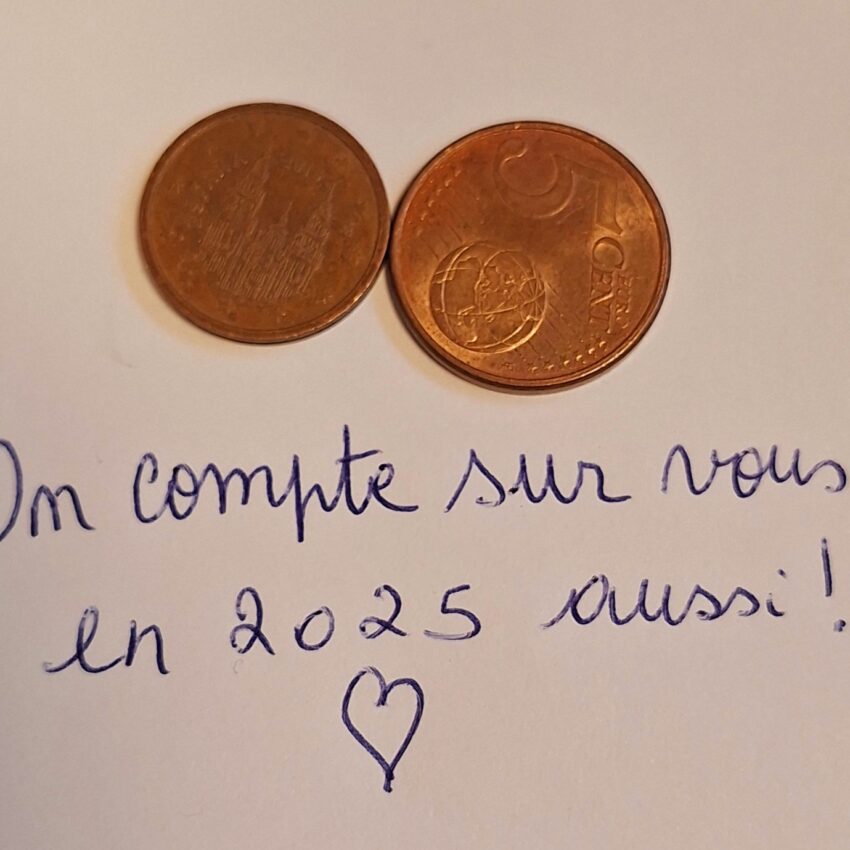 5
EURO
CENT
On compte sur vous
en 2025 aussi !